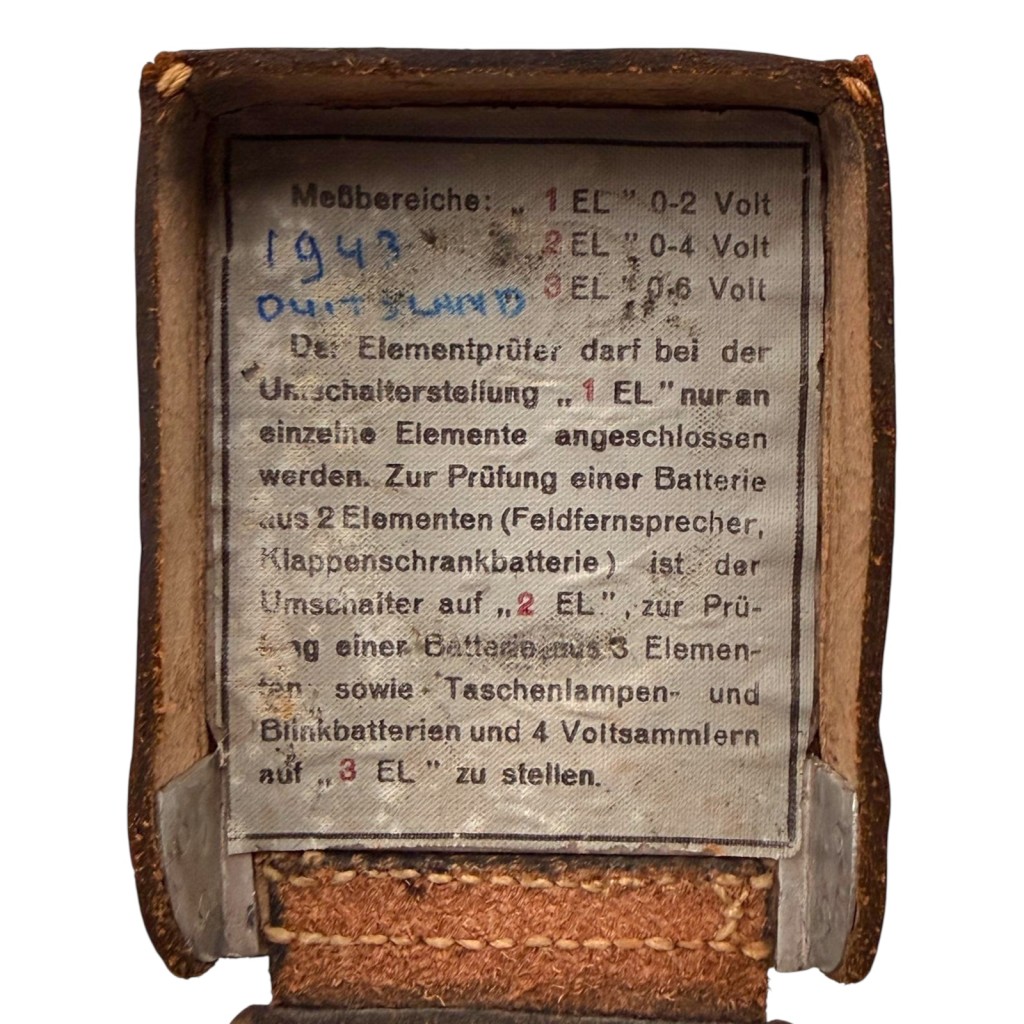 Meßbereiche: „ 1 EL ” 0-2 Volt
1943 2 EL ” 0-4 Volt
DUITSLAND 3 EL ” 0-6 Volt
Der Elementprüfer darf bei der
Umschalterstellung „ 1 EL ” nur an
einzelne Elemente angeschlossen
werden. Zur Prüfung einer Batterie
aus 2 Elementen (Feldfernsprecher,
Klappenschrankbatterie) ist der
Umschalter auf „2 EL”, zur Prü-
fung einer Batterie aus 3 Elemen-
ten sowie Taschenlampen- und
Blinkbatterien und 4 Voltsammlern
auf „ 3 EL ” zu stellen.